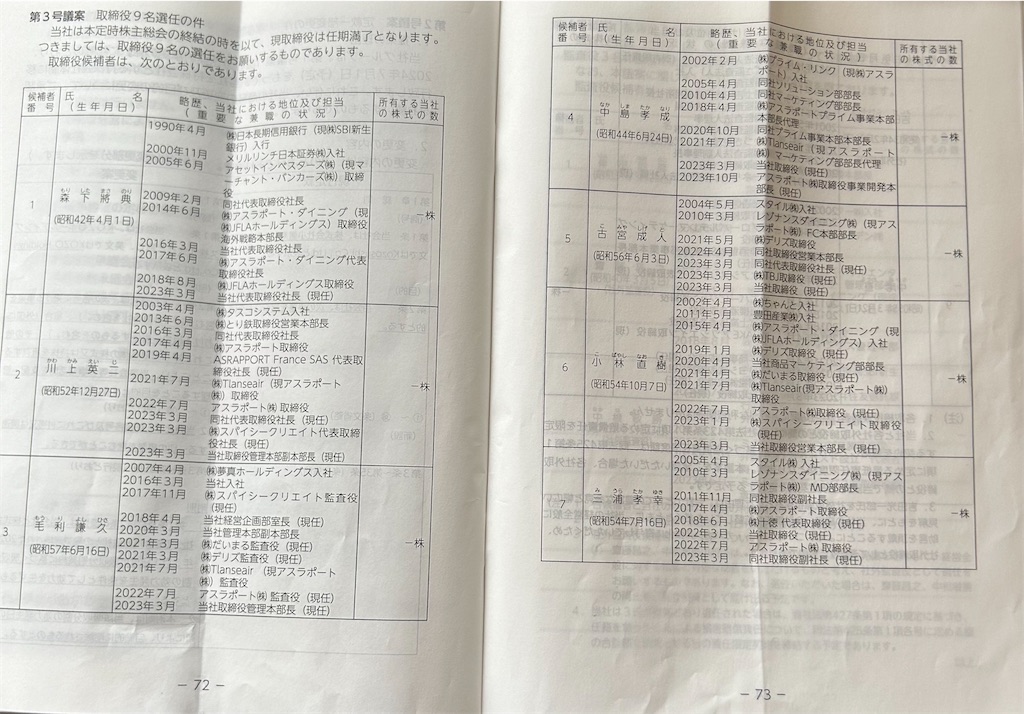 第３号議案　取締役９名選任の件
当社は本定時株主総会の終結の時を以て、現取締役は任期満了となります。
つきましては、取締役９名の選任をお願いするものであります。
取締役候補者は、次のとおりであります。
候補者番号　氏名（生年月日）　略歴、当社における地位及び担当（重要な兼職の状況）　所有する当社の株式の数
1
もり した まさ のり
森下將典
(昭和42年4月1日)
1990年4月　㈱日本長期信用銀行（現㈱SBI新生
銀行）入行
2000年11月　メリルリンチ日本証券㈱入社
2005年6月　アセットインベスターズ㈱（現マ
ーチャント・バンカーズ㈱）取締
役
2009年2月　同社代表取締役社長
2014年6月　㈱アスラポート・ダイニング（現
㈱JFLAホールディングス）取締役
海外戦略本部長
2016年3月　当社代表取締役社長
2017年6月　㈱アスラポート・ダイニング代表
取締役社長
2018年8月　㈱JFLAホールディングス取締役
2023年3月　当社代表取締役社長（現任）
－株
2
かわ かみ えい じ
川上英二
(昭和52年12月27日)
2003年4月　㈱タスコシステム入社
2013年6月　㈱とり鉄取締役営業本部長
2016年3月　同社代表取締役社長
2017年4月　㈱アスラポート取締役
2019年4月　ASRAPPORT France SAS 代表取
締役社長（現任）
2021年7月　㈱Tlanseair（現アスラポート
㈱）取締役
2022年7月　アスラポート㈱ 取締役
2023年3月　同社代表取締役社長（現任）
2023年3月　㈱スパイシークリエイト代表取締
役社長（現任）
2023年3月　当社取締役管理本部副本部長（現任）
－株
3
もう り よし ひさ
毛利謙久
(昭和57年6月16日)
2007年4月　㈱夢真ホールディングス入社
2016年3月　当社入社
2017年11月　㈱スパイシークリエイト監査役
（現任）
2018年4月　当社経営企画部室長（現任）
2020年3月　当社管理本部副本部長
2021年3月　㈱だいまる監査役（現任）
2021年3月　㈱デリズ監査役（現任）
2021年7月　㈱Tlanseair （現アスラポート
㈱）監査役
2022年7月　アスラポート㈱ 監査役（現任）
2023年3月　当社取締役管理本部長（現任）
－株
－ 72 －
候補者番号　氏名（生年月日）　略歴、当社における地位及び担当（重要な兼職の状況）　所有する当社の株式の数
4
なか しま たか なり
中島孝成
(昭和44年6月24日)
2002年2月　㈱プライム・リンク（現㈱アスラ
ポート）入社
2005年4月　同社ソリューション部部長
2010年4月　同社マーケティング部部長
2018年4月　㈱アスラポートプライム事業本部
本部長代理
2020年10月　同社プライム事業本部本部長
2021年7月　㈱Tlanseair（現アスラポート
㈱）マーケティング部部長代理
2023年3月　当社取締役（現任）
2023年10月　アスラポート㈱取締役事業開発本
部長（現任）
－株
5
こ みや しげ と
古宮成人
(昭和56年6月3日)
2004年5月　スタイル㈱入社
2010年3月　レゾナンスダイニング㈱（現アス
ラポート㈱）FC本部部長
2021年5月　㈱デリズ取締役
2022年4月　同社取締役営業本部長
2023年3月　同社代表取締役社長（現任）
2023年3月　㈱TBJ取締役（現任）
2023年3月　当社取締役（現任）
－株
6
小林直樹
(昭和54年10月7日)
2002年4月　㈱ちゃんと入社
2011年5月　豊田産業㈱入社
2015年4月　㈱アスラポート・ダイニング（現
㈱JFLAホールディングス）入社
2019年1月　㈱デリズ取締役（現任）
2020年4月　当社商品マーケティング部部長
2021年4月　㈱だいまる取締役（現任）
2021年7月　㈱Tlanseair(現アスラポート㈱)
取締役
2022年7月　アスラポート㈱取締役（現任）
2023年1月　㈱スパイシークリエイト取締役
（現任）
2023年3月　当社取締役営業本部長（現任）
－株
7
み うら たか ゆき
三浦孝幸
(昭和54年7月16日)
2005年4月　スタイル㈱入社
2010年3月　レゾナンスダイニング㈱（現アス
ラポート㈱） MD部部長
2011年11月　同社取締役副社長
2017年4月　㈱アスラポート取締役
2018年6月　㈱十徳 代表取締役（現任）
2022年3月　当社取締役（現任）
2022年7月　アスラポート㈱ 取締役
2023年3月　同社取締役副社長（現任）
－株
－ 73 －